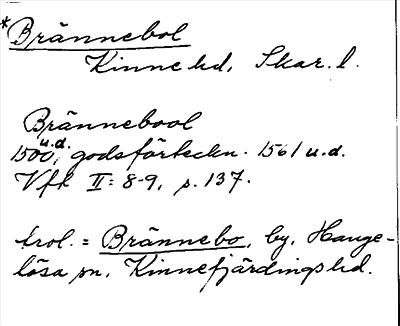 *Brännebol
Kinne hd, Skar. l.
Brännebool
1500 u.d., godsförteckn. 1561 u.d.
Vfh II: 8-9, s. 137.
trol. = Brännebo, by, Hauge-
lösa sn, Kinnefjärdings hd.